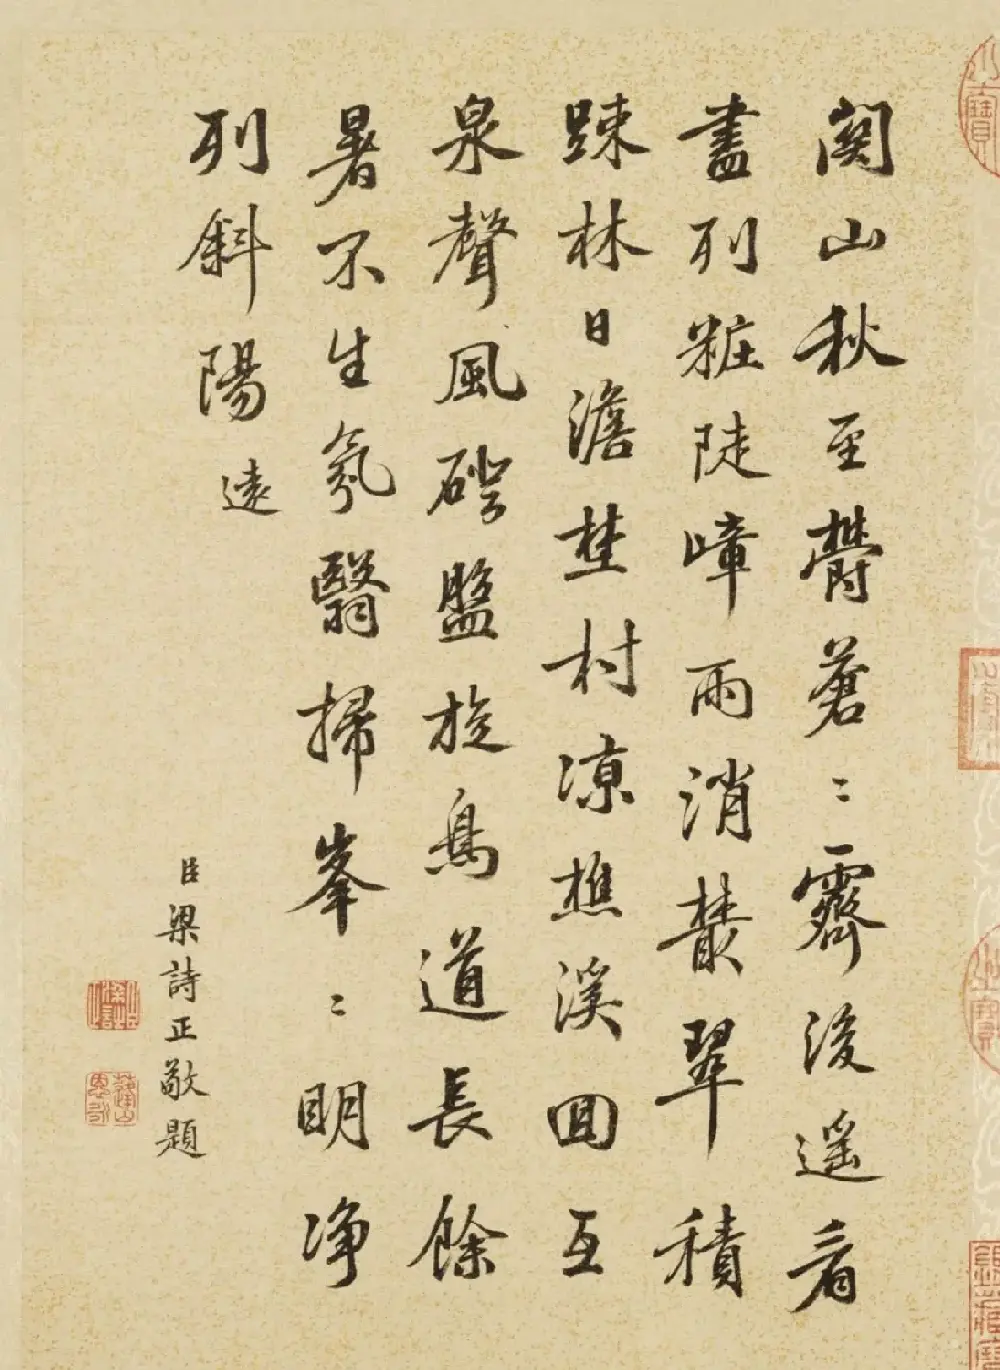 関山秋至欝蒼〻霽後遥看
畫列粧陡嶂雨消叢翠積
踈林日澹埜村凉樵溪囬互
泉聲風磴盤旋鳥道長餘
暑不生氛翳掃峯〻明净
列斜陽 遠
臣梁詩正敬題